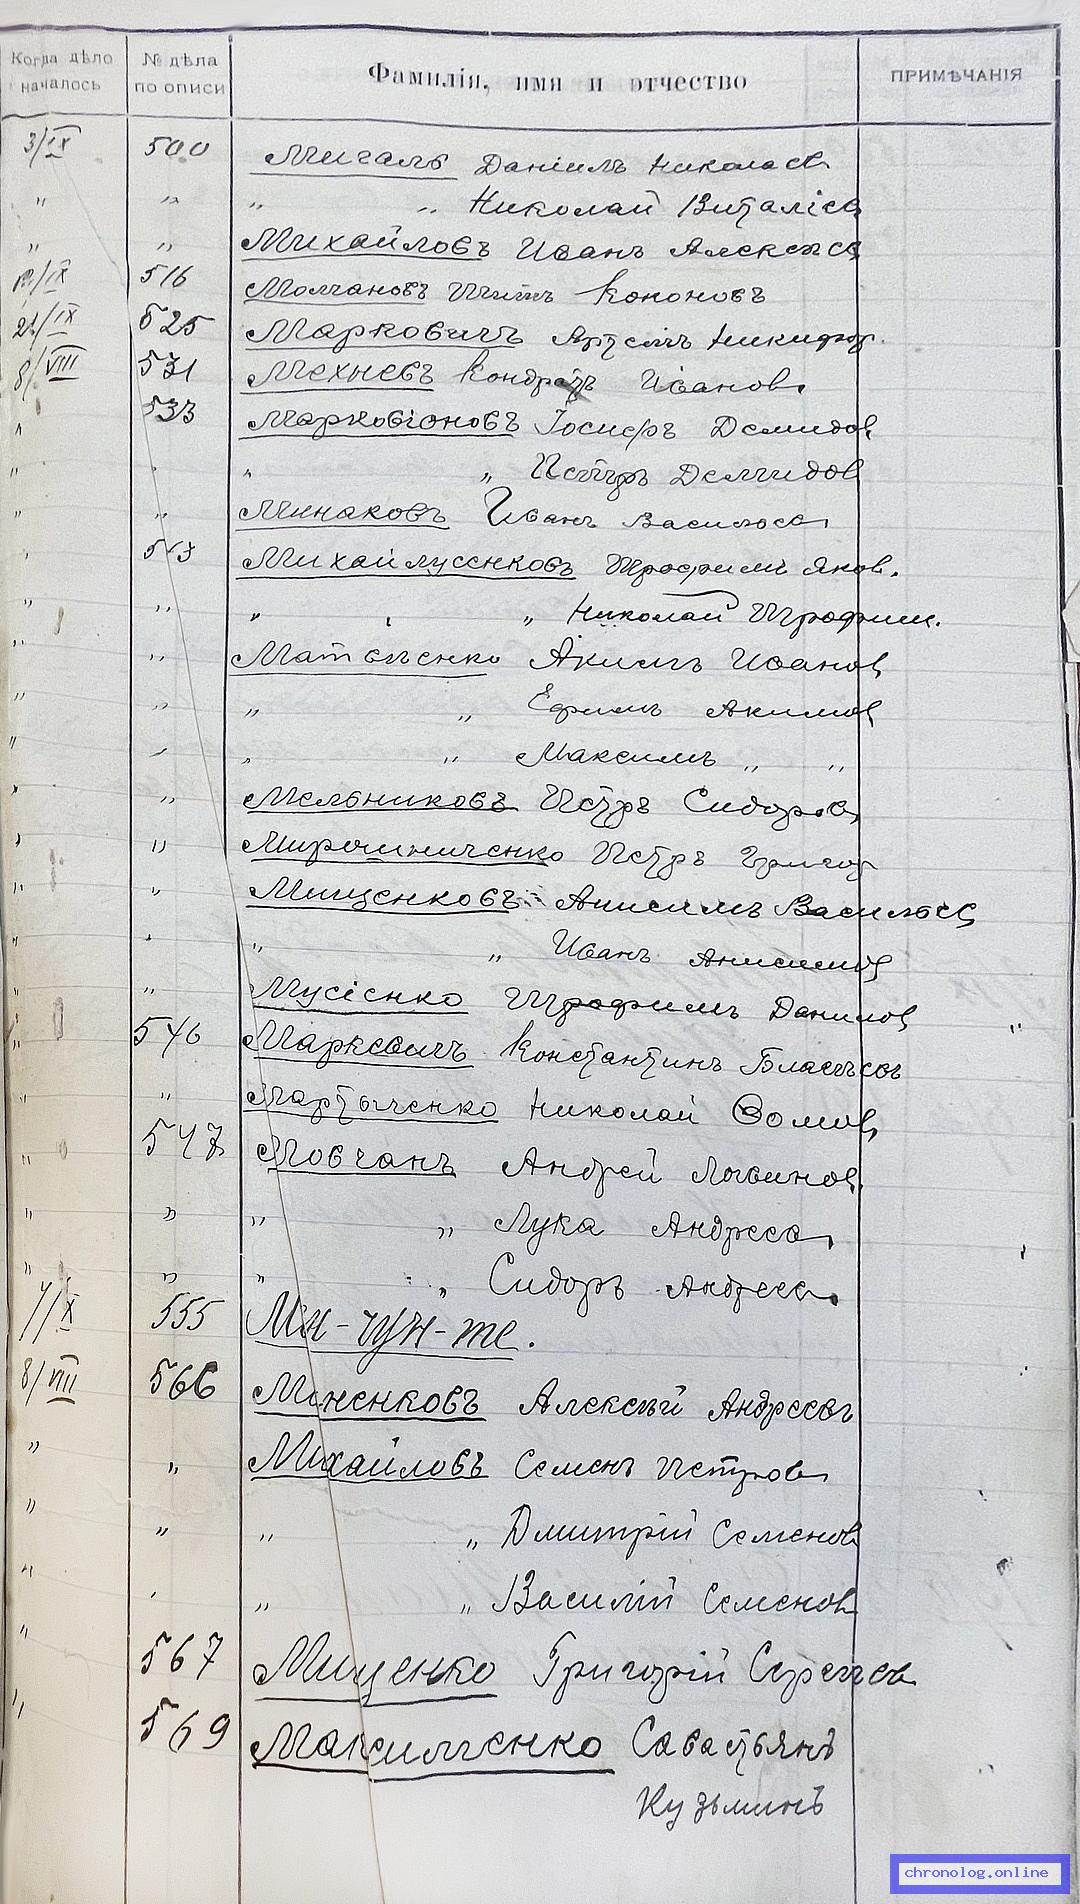 Когда дѣло началось № дѣла по описи Фамилія, имя и отчество ПРИМѢЧАНІЯ
3/IX 500 Мигаль Даніилъ Николаев
" " " " Николай Виталіев
" " Михайловъ Иванъ Алексѣев
IX 516 Молчановъ Кононовъ
IX 525 Марковичъ Артемъ Никифор.
8/VIII 531 Мехнев Кондрат Иванов.
" 533 Марковіоновъ Іосифъ Демидов
" " " " Петръ Демидов
" " Минаковъ Иванъ Васильев
" 543 Михайлусенковъ Трофимъ Яков.
" " " " Николай Трофим.
" " Матвѣенко Акимъ Иванов
" " " " Ефимъ Акимов
" " " " Максимъ " "
" " Мельниковъ Петръ Сидоров
" " Мирошниченко Петръ Григор
" " Мищенковъ Анисимъ Васильев
" " " " Иванъ Анисимов
" " Мусіенко Трофимъ Данилов "
" 546 Маркевичъ Константинъ
" " Мартыченко Николай Ѳомов
" 547 Мовчанъ Андрей Логвинов
" " " " Лука Андреев
" " " " Сидоръ Андреев.
7/X 555 Мин-чун-те.
8/VIII 566 Миненковъ Алексѣй Андреевъ
" " Михайловъ Семенъ Петров
" " " " Дмитрій Семенов
" " " " Василій Семенов
" 567 Мищенко Григорій Сергѣев
" 569 Максименко Савастьянъ
Кузьминъ
chronolog.online